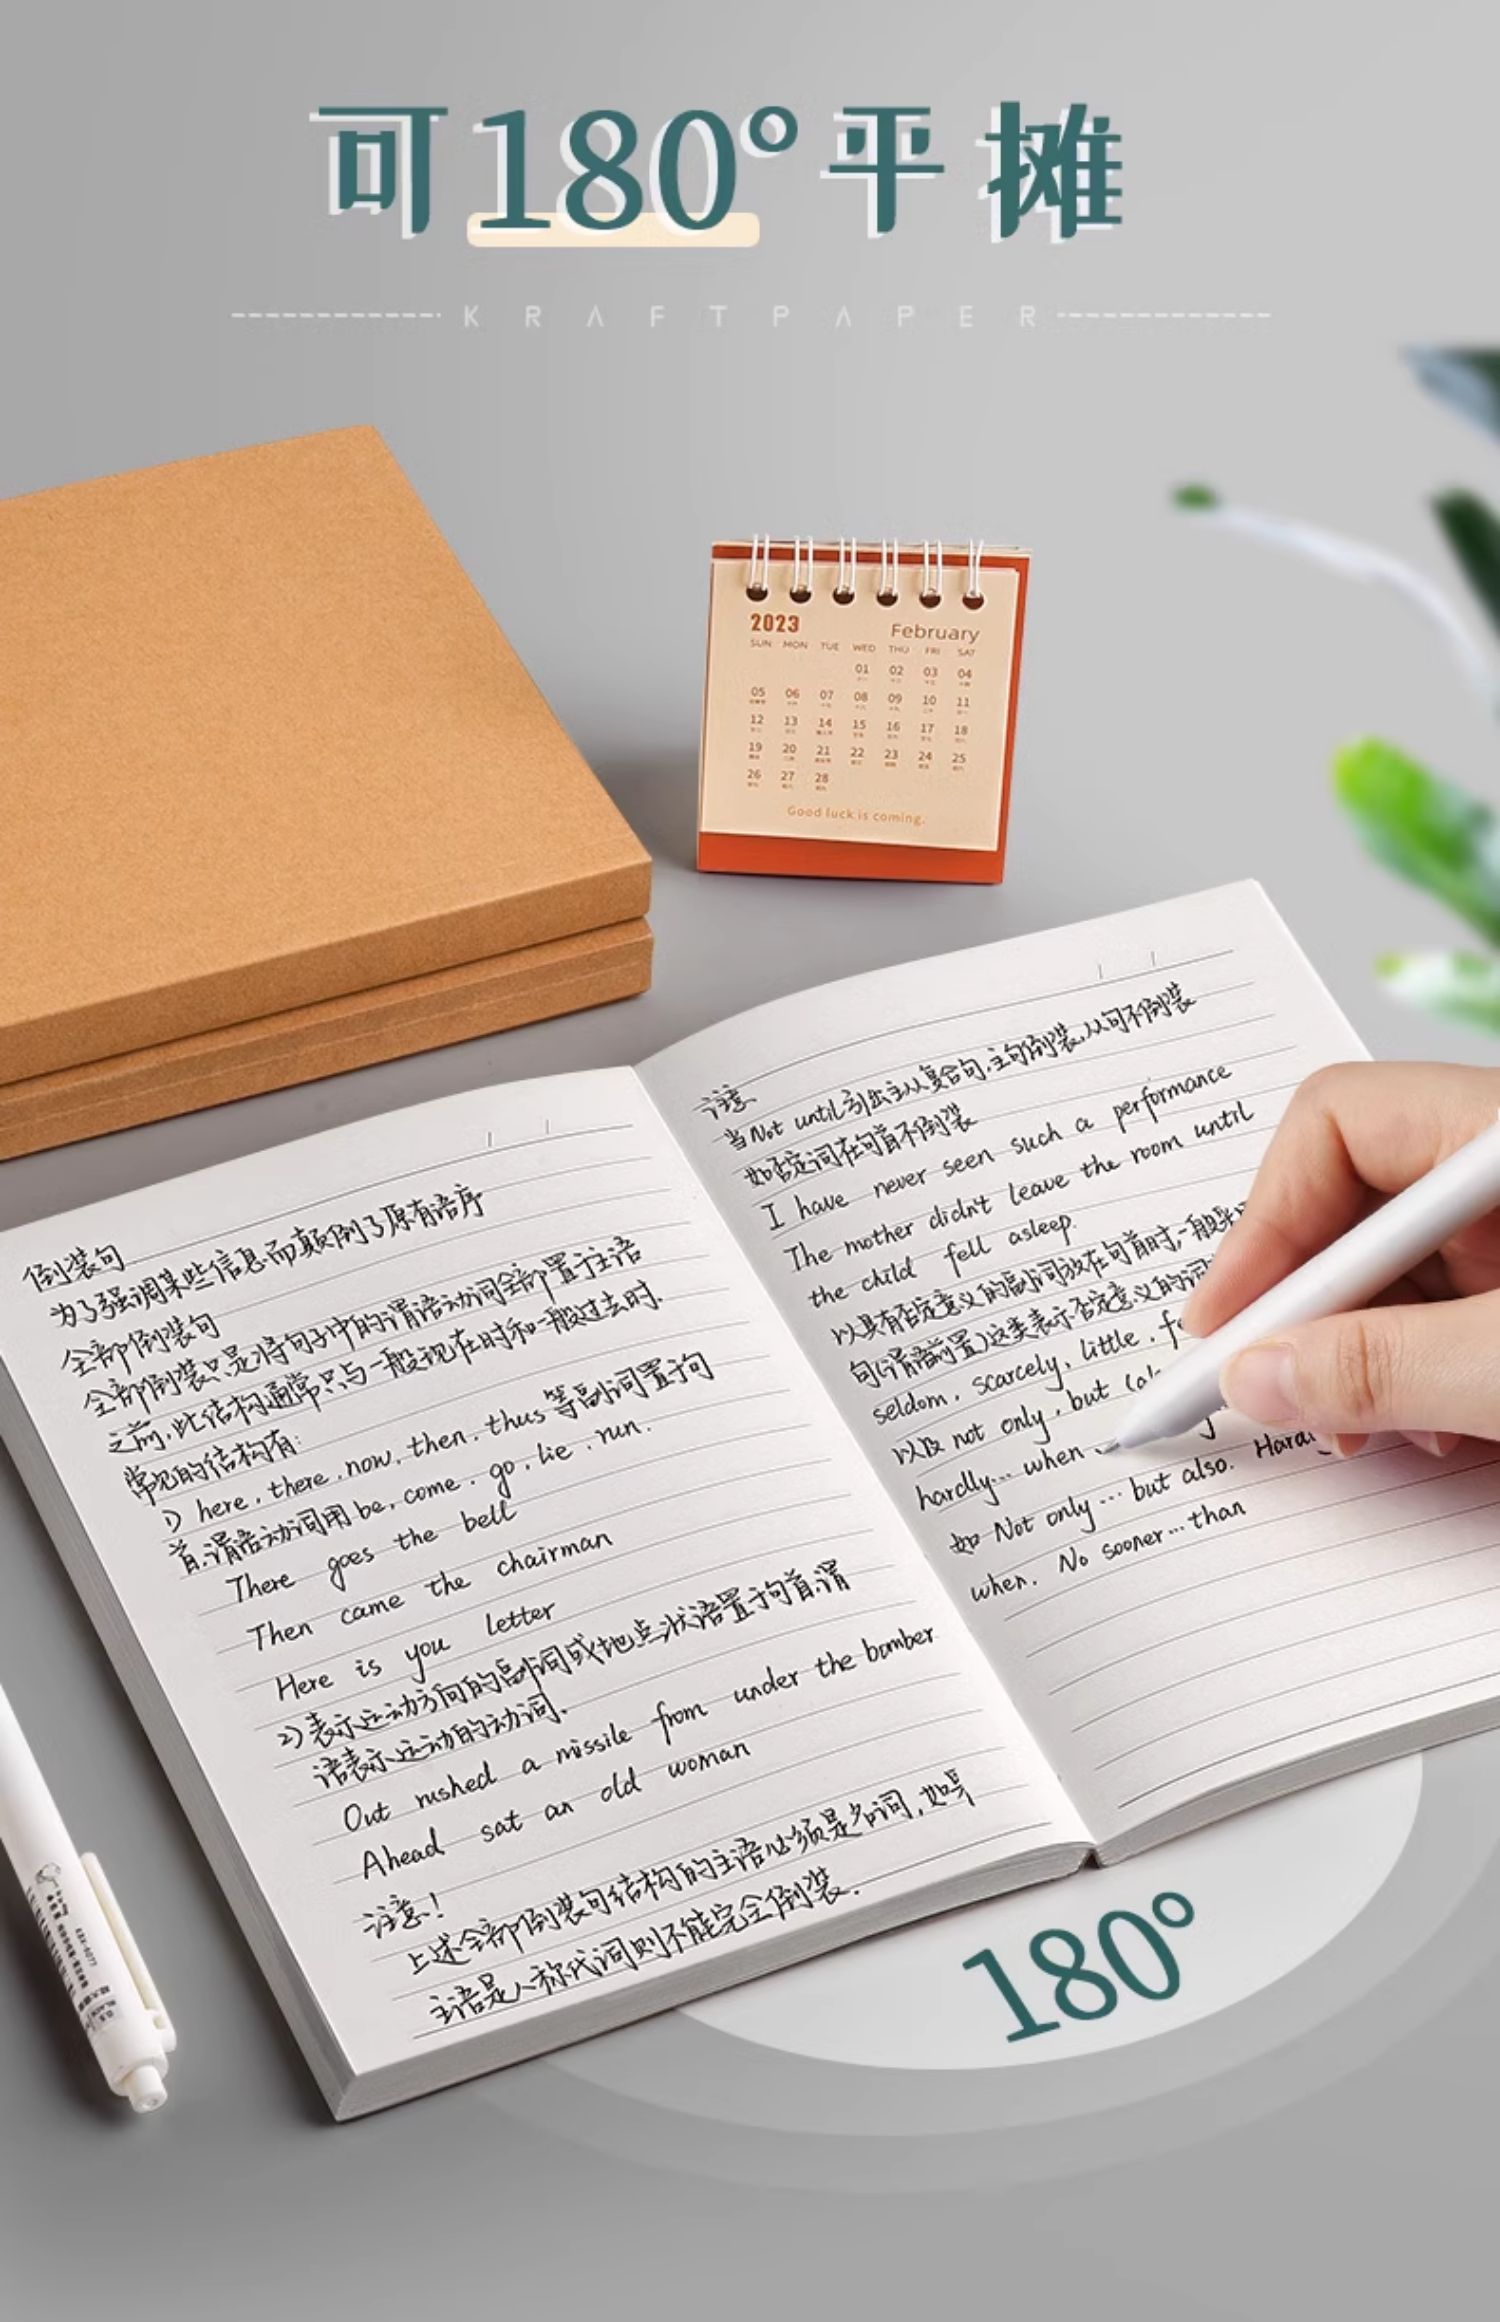 可180°平摊
KRAFTPAPER
2023 February
SUN MON TUE WED THU FRI SAT
01 02 03 04
05 06 07 08 09 10 11
12 13 14 15 16 17 18
19 20 21 22 23 24 25
26 27 28
Good luck is coming.
倒装句
为了强调某些信息而颠倒了原有语序
全部倒装句
全部倒装只是将句子中的谓语动词全部置于主语
之前,此结构通常只与一般现在时和一般过去时.
常见的结构有:
1) here, there, now, then, thus等副词置于句
首,谓语动词用be, come, go, lie, run.
There goes the bell
Then came the chairman
Here is you letter
2)表示运动方向的副词或地点状语置于句首,谓
语表示运动的动词.
Out rushed a missile from under the bomber
Ahead sat an old woman
注意!
上述全部倒装句结构的主语必须是名词,如果
主语是人称代词则不能完全倒装.
注意
当Not until引出主从复合句,主句倒装,从句不倒装
如否定词在句首不倒装
I have never seen such a performance
The mother didn't leave the room until
the child fell asleep.
以具有否定意义的副词放在句首时,一般采
句(谓语前置)这类表示否定意义的词
seldom, scarcely, little, fe
以及not only, but (al
hardly... when
如 Not only... but also. Hard
when. No sooner... than
180°